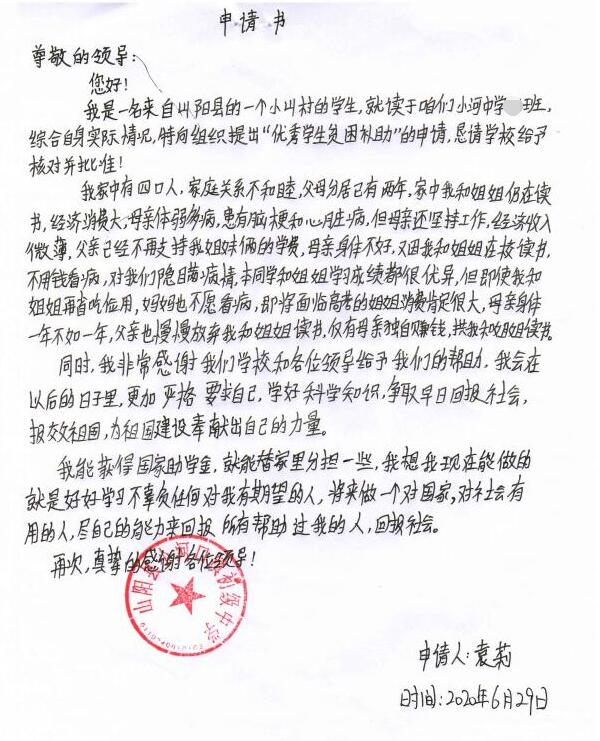 申请书
尊敬的领导:
您好!
我是一名来自山阳县的一个小山村的学生,就读于咱们小河中学班,
综合自身实际情况,特向组织提出“优秀学生贫困补助”的申请,恳请学校给予
核对并批准!
我家中有四口人,家庭关系不和睦,父母分居已有两年,家中我和姐姐仍在读
书,经济消费大,母亲体弱多病,患有脑梗和心脏病,但母亲还坚持工作,经济收入
微薄,父亲已经不再支持我姐妹俩的学费,母亲身体不好,又因我和姐姐在校读书,
不用钱看病,对我们隐瞒病情,本同学和姐姐学习成绩都很优异,但即使我和
姐姐再省吃俭用,妈妈也不愿看病,即将面临高考的姐姐消费肯定很大,母亲身体
一年不如一年,父亲也慢慢放弃我和姐姐读书,仅有母亲独自赚钱,供我和姐姐读书。
同时,我非常感谢我们学校和各位领导给予我们的帮助,我会在
以后的日子里,更加严格要求自己,学好科学知识,争取早日回报社会,
报效祖国,为祖国建设奉献出自己的力量。
我能获得国家助学金,就能替家里分担一些,我想我现在能做的
就是好好学习不辜负任何对我有期望的人,将来做一个对国家,对社会有
用的人,尽自己的能力来回报所有帮助过我的人,回报社会。
再次,真挚的感谢各位领导!
山阳县河口镇初级中学
申请人:袁莉
时间:2020年6月29日